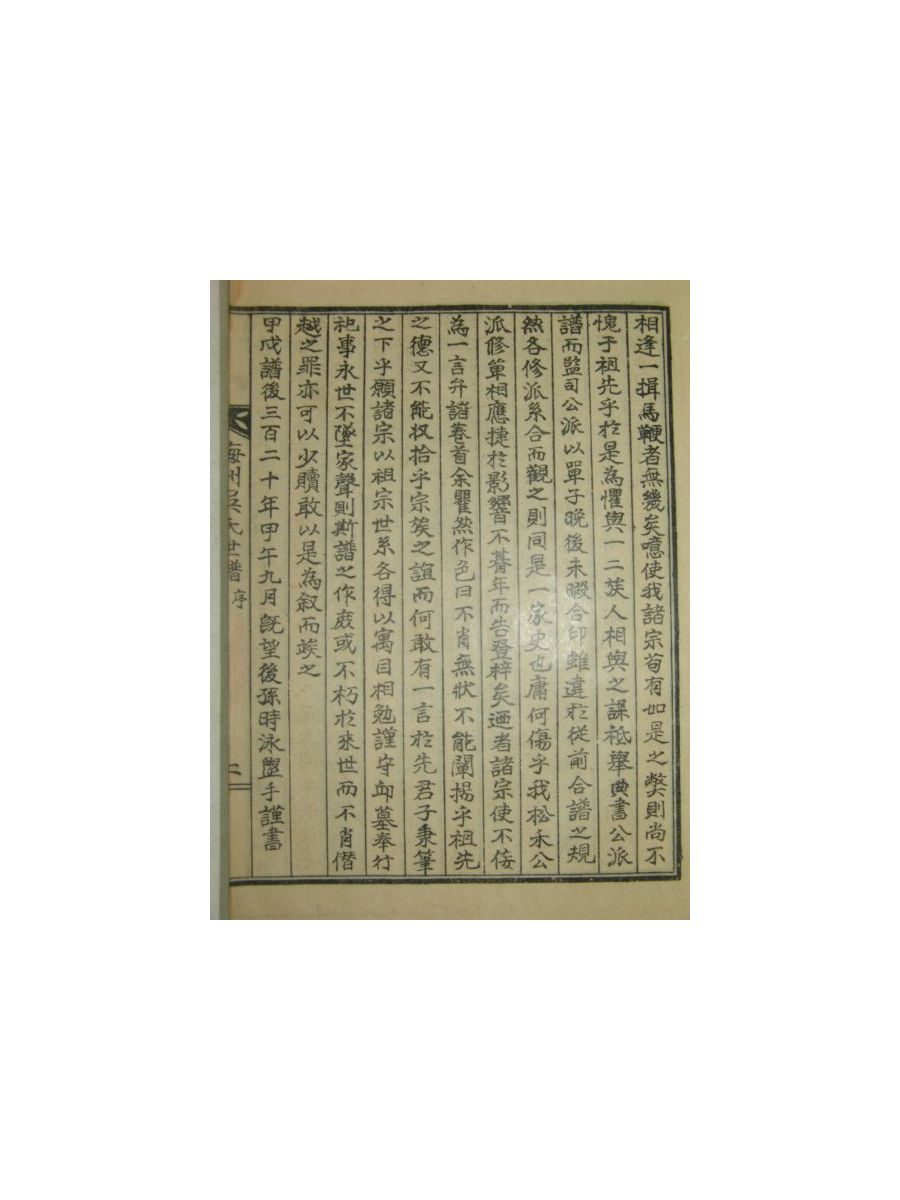 相逢一揖馬鞭者無幾矣噫使我諸宗苟有如是之獘則尚不
愧于祖先乎於是為懼與一二族人相與之謀祗擧典書公派
譜而監司公派以單子晚後未暇合印雖違於從前合譜之規
然各修派系合而觀之則同是一家史也庸何傷乎我松禾公
派修單相應捷於影響不朞年而告登梓矣迺者諸宗使不佞
為一言弁諸卷首余瞿然作色曰不肖無狀不能闡揚乎祖先
之德又不能收拾乎宗族之誼而何敢有一言於先君子秉筆
之下乎願諸宗以祖宗世系各得以寓目相勉謹守邱墓奉行
祀事永世不墜家聲則斯譜之作庶或不朽於来世而不肖僭
越之罪亦可以少贖敢以是為叙而竢之
甲戌譜後三百二十年甲午九月旣望後孫時泳盥手謹書
海州吳氏世譜 序 二